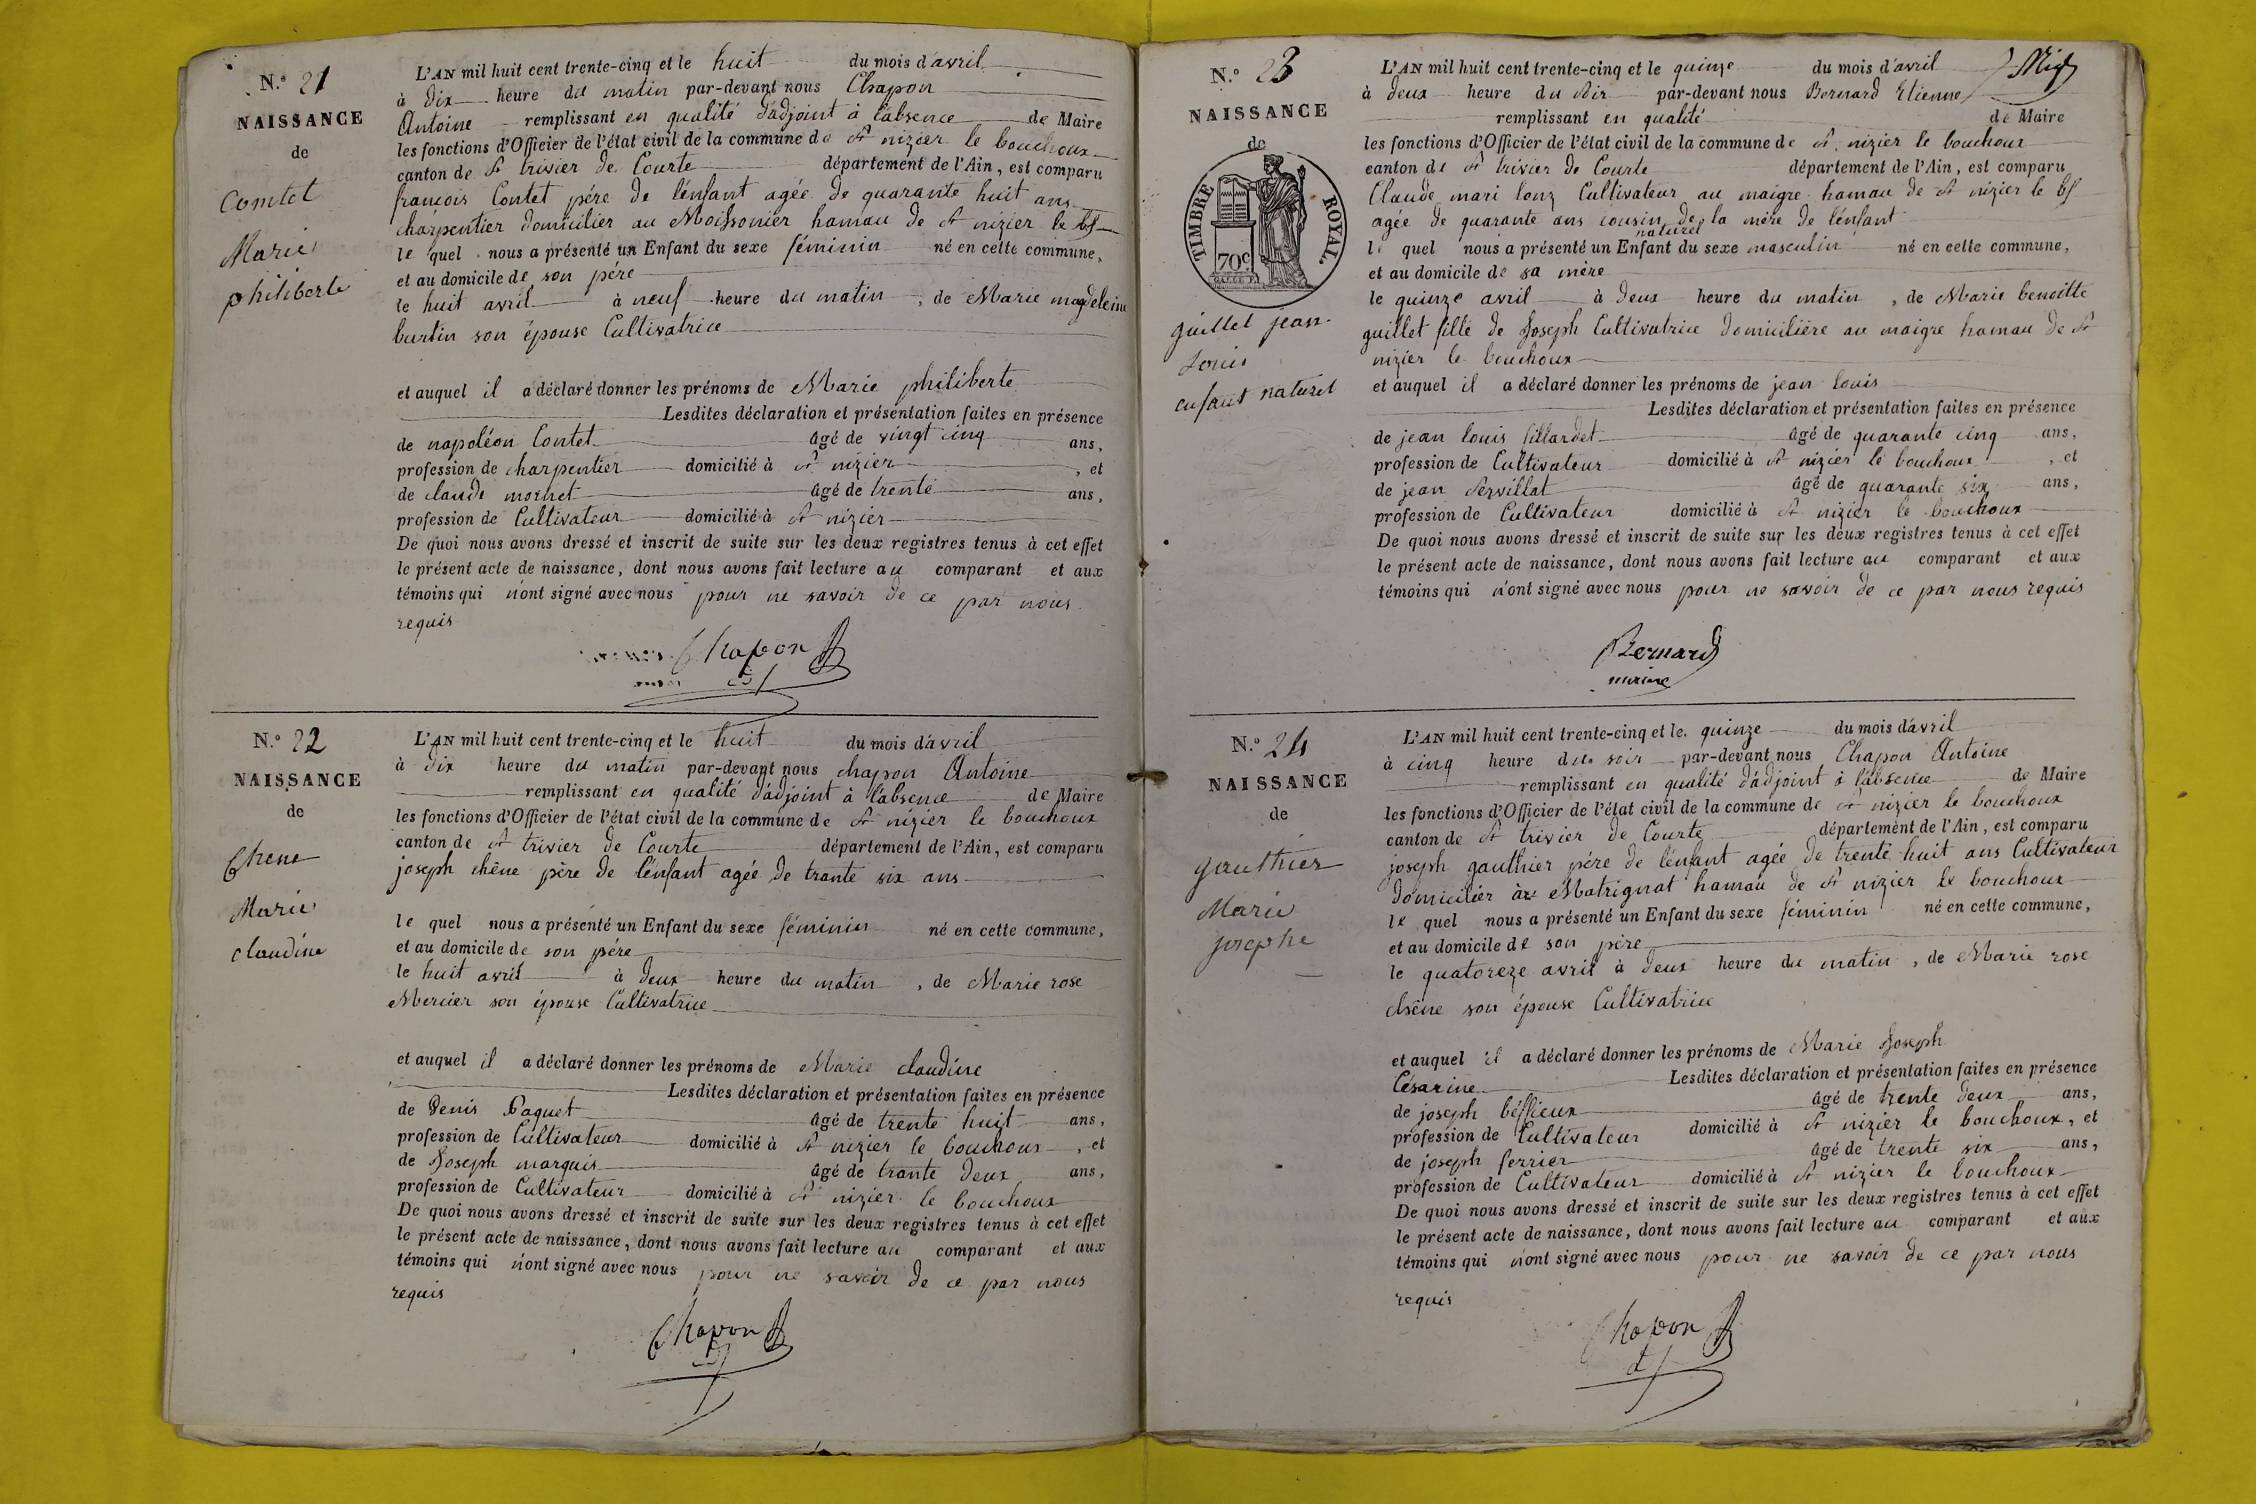 N.º 21
NAISSANCE
de
Comtet
Marie
philiberte
L'AN mil huit cent trente-cinq et le huit du mois d'avril
à dix heure du matin par-devant nous Chapon
Antoine remplissant en qualité d'adjoint à l'absence de Maire
les fonctions d'Officier de l'état civil de la commune de St nizier le bouchoux
canton de St trivier de Courte département de l'Ain, est comparu
françois Contet père de l'énfant agée de quarante huit ans
charpentier domicilier au Moissonier hamau de St nizier le bf
le quel nous a présenté un Enfant du sexe féminin né en cette commune,
et au domicile de son père
le huit avril à neuf heure du matin, de Marie magdeleine
burtin son épouse Cultivatrice
et auquel il a déclaré donner les prénoms de Marie philiberte
Lesdites déclaration et présentation faites en présence
de napoléon Contet âgé de vingt cinq ans,
profession de charpentier domicilié à St nizier, et
de claude mornet âgé de trente ans,
profession de Cultivateur domicilié à St nizier
De quoi nous avons dressé et inscrit de suite sur les deux registres tenus à cet effet
le présent acte de naissance, dont nous avons fait lecture au comparant et aux
témoins qui n'ont signé avec nous pour ne savoir de ce par nous
requis
Chapon
N.º 22
NAISSANCE
de
Chene
Marie
claudine
L'AN mil huit cent trente-cinq et le huit du mois d'avril
à dix heure du matin par-devant nous chapon Antoine
remplissant en qualité d'adjoint à l'absence de Maire
les fonctions d'Officier de l'état civil de la commune de St nizier le bouchoux
canton de St trivier de Courte département de l'Ain, est comparu
joseph chêne père de l'énfant agée de trante six ans
le quel nous a présenté un Enfant du sexe féminin né en cette commune,
et au domicile de son père
le huit avril à deux heure du matin, de Marie rose
Mercier son épouse Cultivatrice
et auquel il a déclaré donner les prénoms de Marie claudine
Lesdites déclaration et présentation faites en présence
de Denis Paquet âgé de trente huit ans,
profession de Cultivateur domicilié à St nizier le bouchoux, et
de Joseph marquis âgé de trante deux ans,
profession de Cultivateur domicilié à St nizier le bouchoux
De quoi nous avons dressé et inscrit de suite sur les deux registres tenus à cet effet
le présent acte de naissance, dont nous avons fait lecture au comparant et aux
témoins qui n'ont signé avec nous pour ne savoir de ce par nous
requis
Chapon
N.º 23
NAISSANCE
de
TIMBRE ROYAL.
70c
guillet jean
Louis
enfant naturel
L'AN mil huit cent trente-cinq et le quinze du mois d'avril
à deux heure du soir par-devant nous Bernard Etienne
remplissant en qualité de Maire
les fonctions d'Officier de l'état civil de la commune de St nizier le bouchoux
canton de St trivier de Courte département de l'Ain, est comparu
Claude mari lonz Cultivateur au maigre hamau de St nizier le bf
agée de quarante ans cousin de la mère de l'énfant
naturel
le quel nous a présenté un Enfant du sexe masculin né en cette commune,
et au domicile de sa mère
le quinze avril à deux heure du matin, de Marie benoitte
guillet fille de Joseph Cultivatrice domicilière au maigre hamau de St
nizier le bouchoux
et auquel il a déclaré donner les prénoms de jean louis
Lesdites déclaration et présentation faites en présence
de jean louis fillardet âgé de quarante cinq ans,
profession de Cultivateur domicilié à St nizier le bouchoux, et
de jean Servillat âgé de quarante six ans,
profession de Cultivateur domicilié à St nizier le bouchoux
De quoi nous avons dressé et inscrit de suite sur les deux registres tenus à cet effet
le présent acte de naissance, dont nous avons fait lecture au comparant et aux
témoins qui n'ont signé avec nous pour ne savoir de ce par nous requis
Bernard
N.º 24
NAISSANCE
de
gauthier
Marie
josephe
L'AN mil huit cent trente-cinq et le quinze du mois d'avril
à cinq heure du soir par-devant nous Chapon Antoine
remplissant en qualité d'adjoint à l'absence de Maire
les fonctions d'Officier de l'état civil de la commune de St nizier le bouchoux
canton de St trivier de Courte département de l'Ain, est comparu
joseph gauthier père de l'énfant agée de trente huit ans Cultivateur
domicilier à Matrignat hamau de St nizier le bouchoux
le quel nous a présenté un Enfant du sexe féminin né en cette commune,
et au domicile de son père
le quatoreze avril à deux heure du matin, de Marie rose
chêne son épouse Cultivatrice
et auquel il a déclaré donner les prénoms de Marie Joseph
Césarine Lesdites déclaration et présentation faites en présence
de joseph béffieux âgé de trente deux ans,
profession de Cultivateur domicilié à St nizier le bouchoux, et
de joseph ferrier âgé de trente six ans,
profession de Cultivateur domicilié à St nizier le bouchoux
De quoi nous avons dressé et inscrit de suite sur les deux registres tenus à cet effet
le présent acte de naissance, dont nous avons fait lecture au comparant et aux
témoins qui n'ont signé avec nous pour ne savoir de ce par nous
requis
Chapon